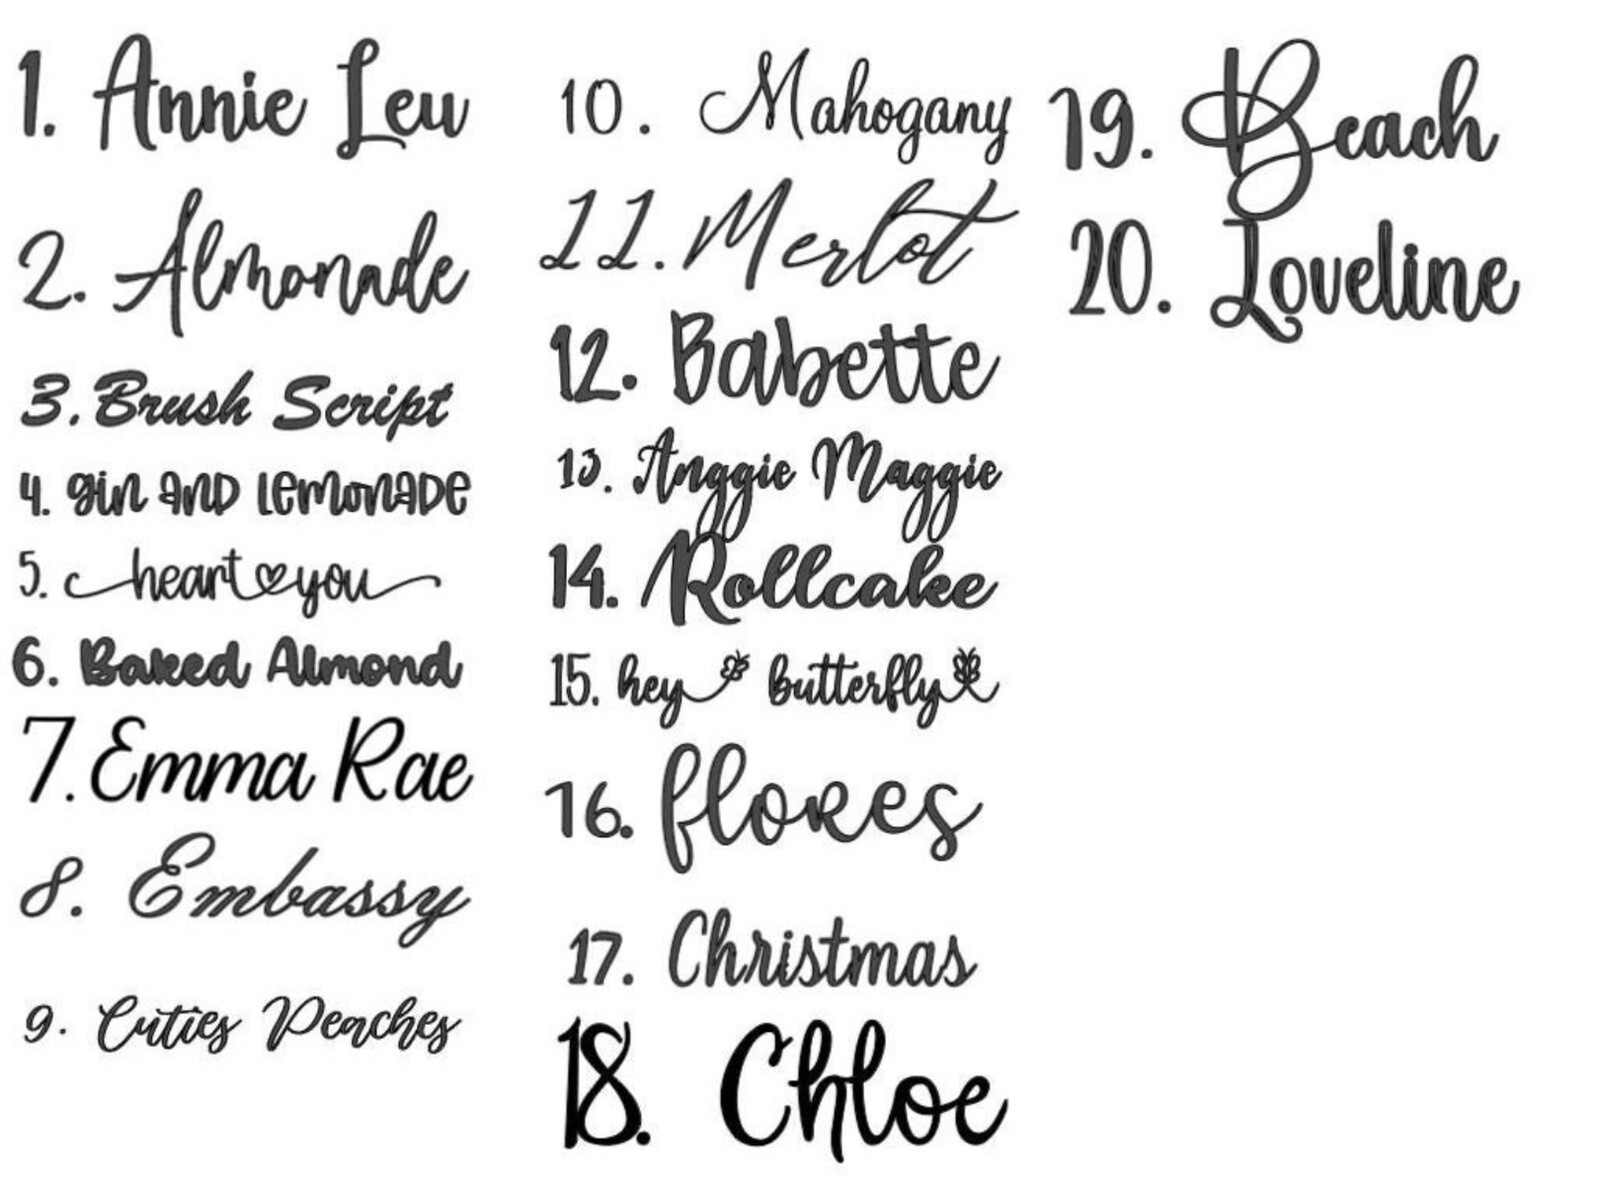 1. Annie Leu
2. Almonade
3. Brush Script
4. gin AND LEMONADE
5. heart♡you
6. Baked Almond
7. Emma Rae
8. Embassy
9. Cuties Peaches
10. Mahogany
11. Merlot
12. Babette
13. Anggie Maggie
14. Rollcake
15. hey butterfly
16. flores
17. Christmas
18. Chloe
19. Beach
20. Loveline